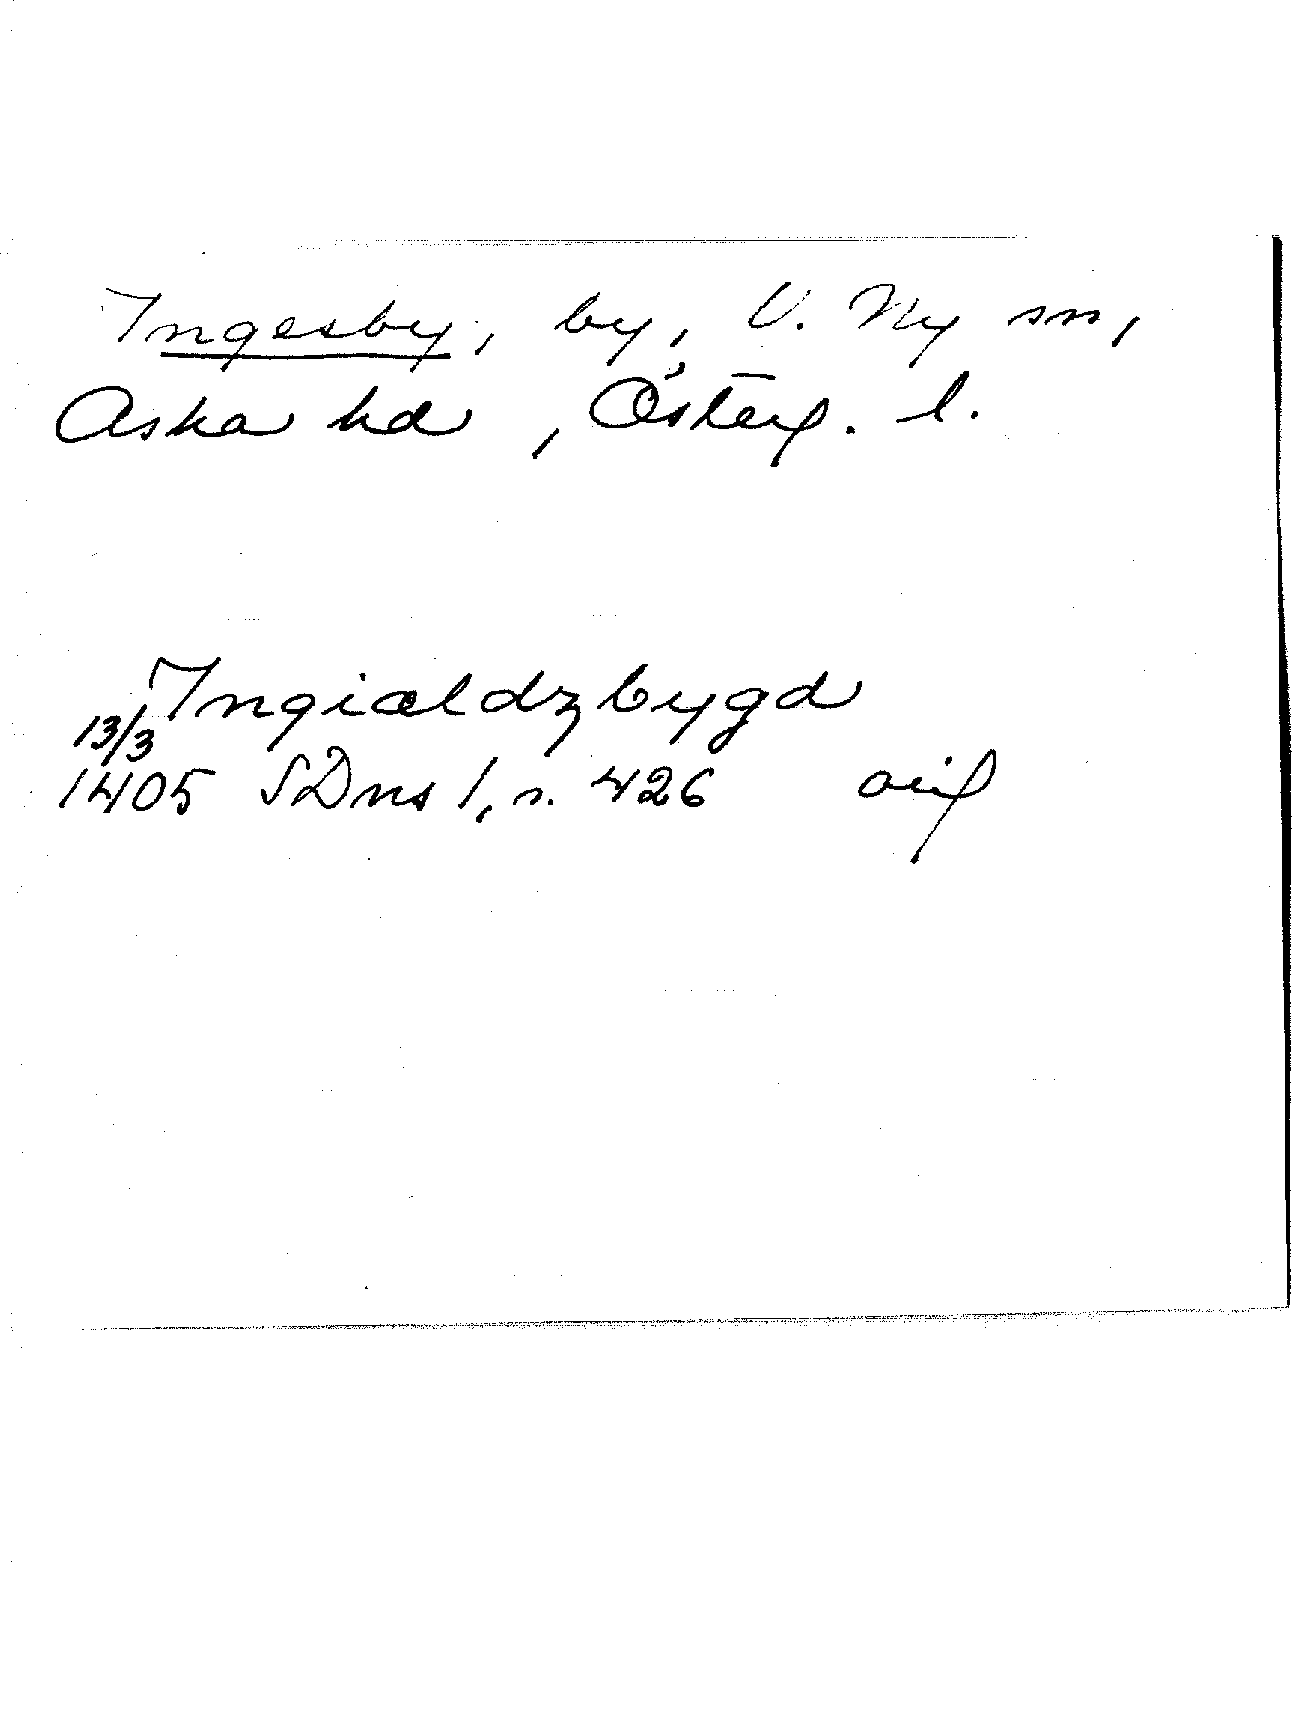 Ingesby, by, V. Ny sn,
Aska hd, Österg. l.
Ingiældzbygd
13/3
1405 SDns 1, s. 426 orig